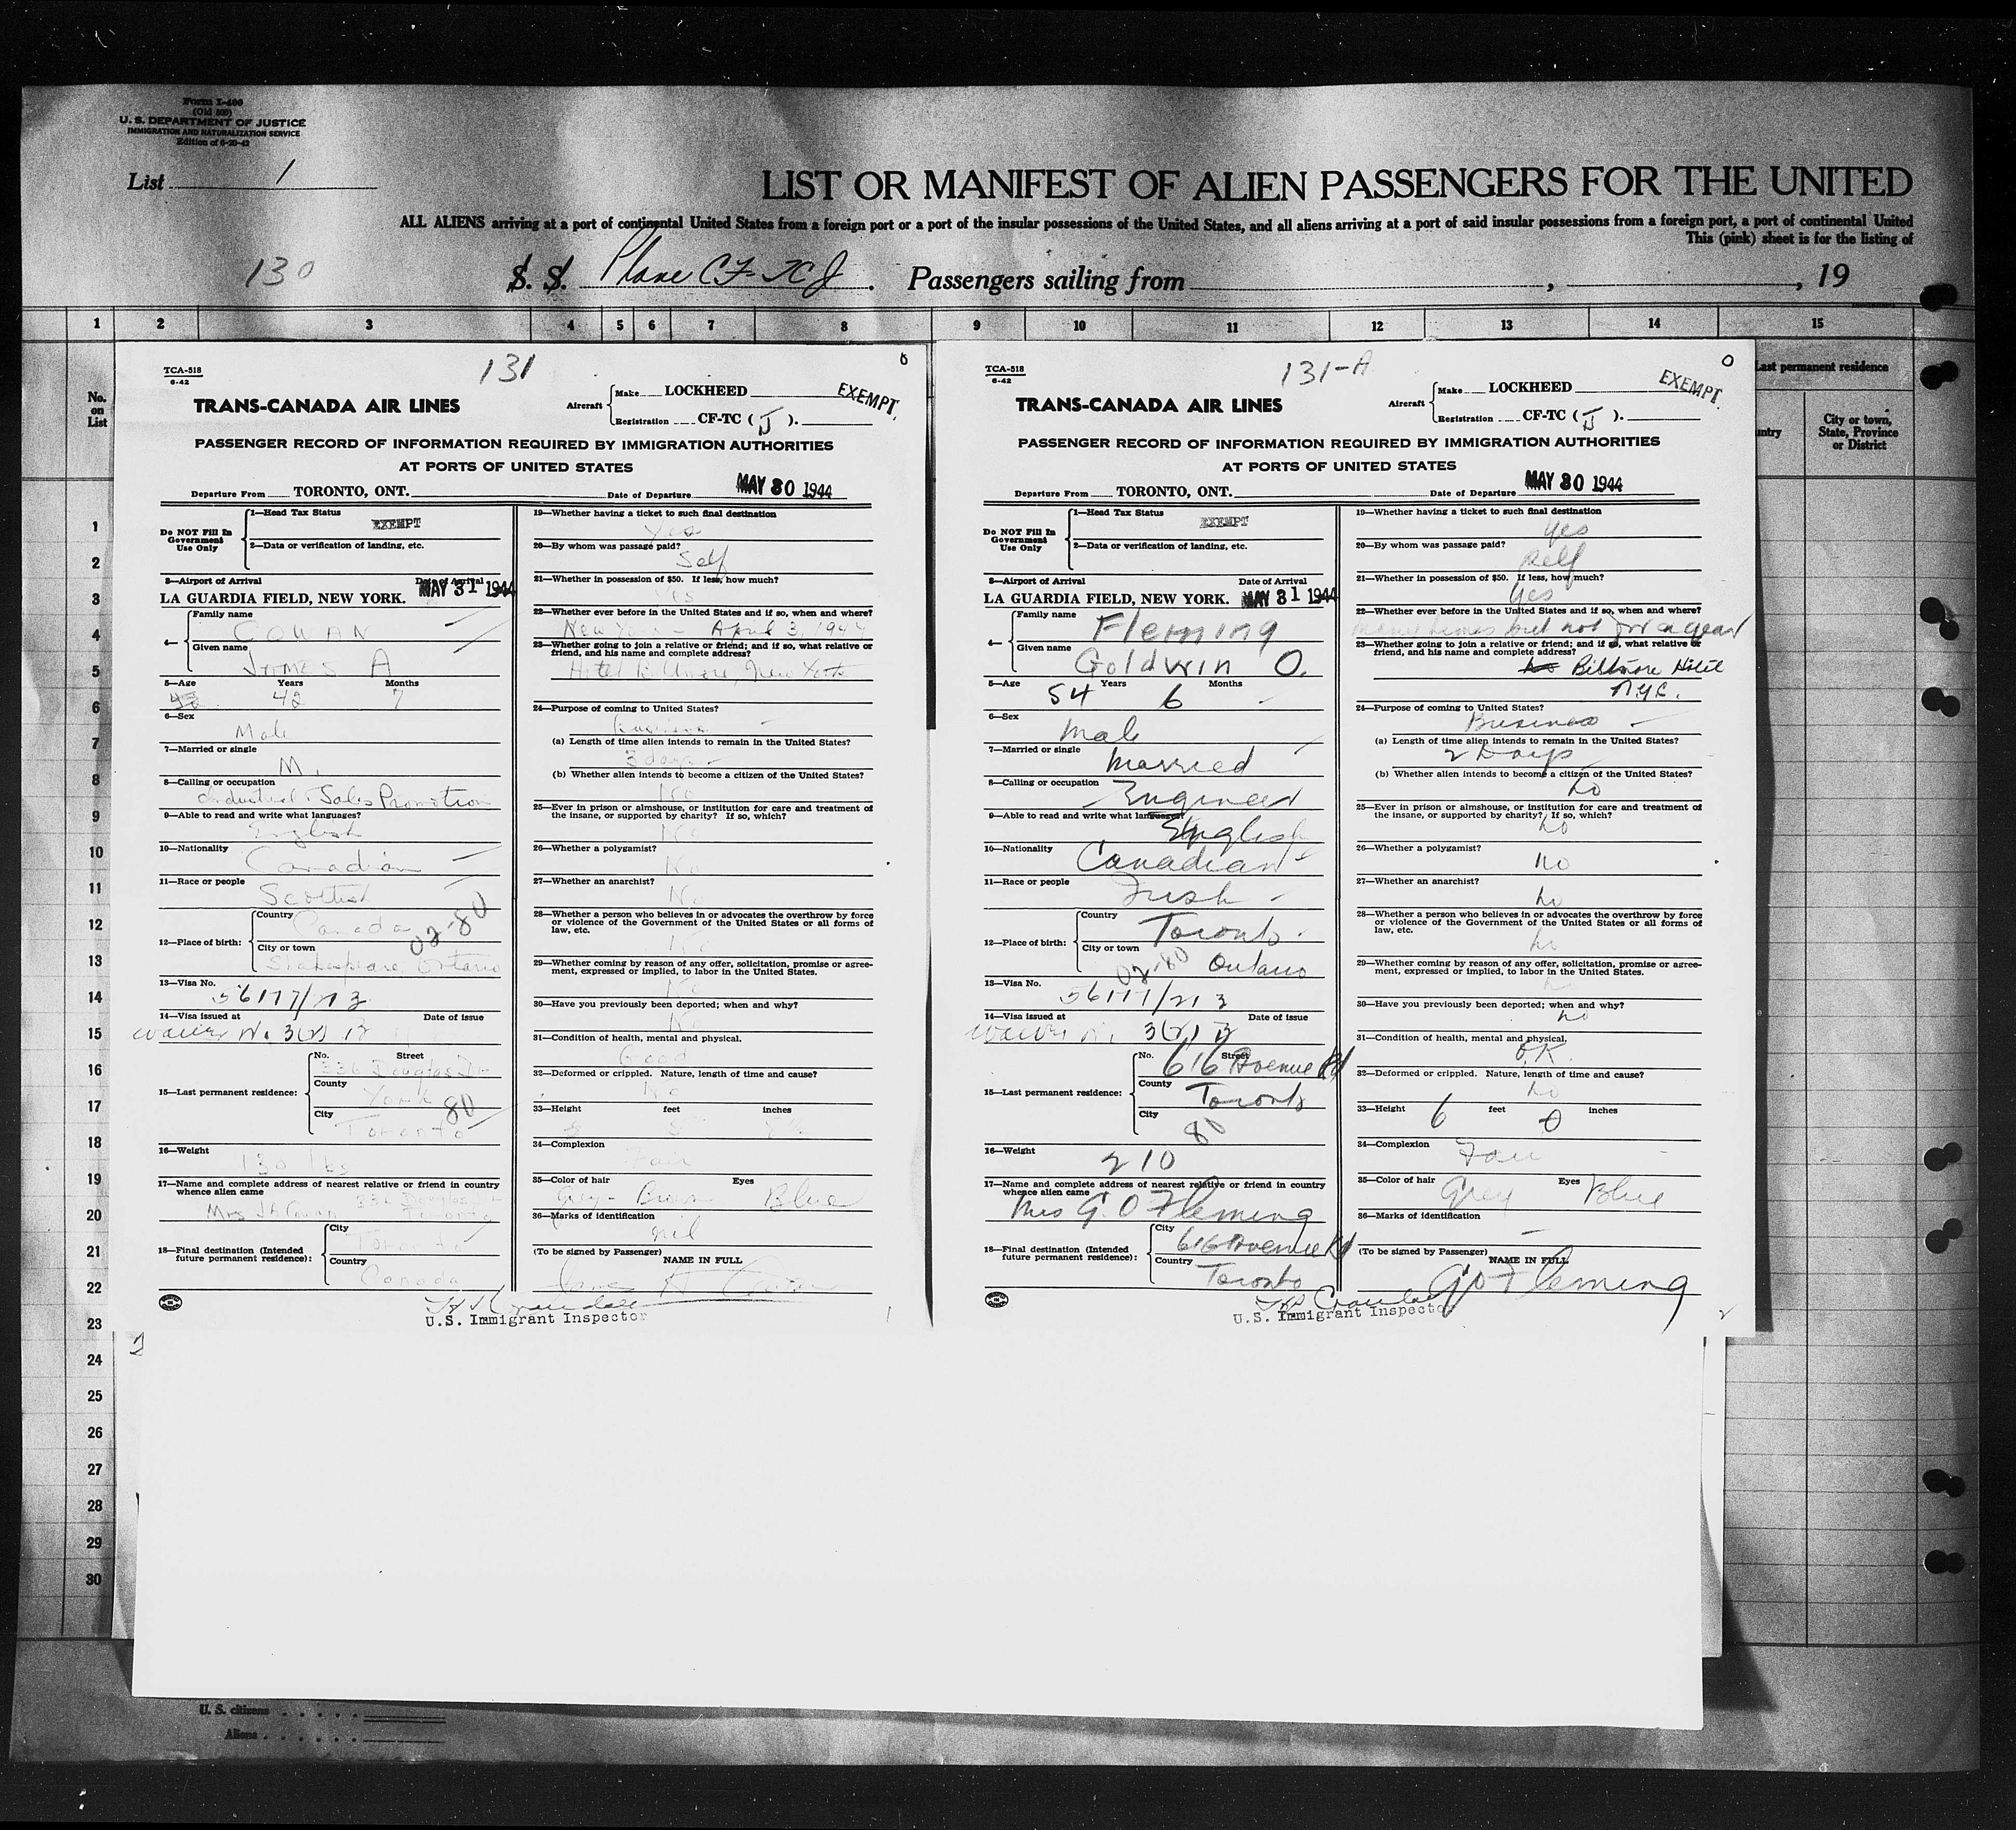 Form I-400
(Old 500)
U. S. DEPARTMENT OF JUSTICE
IMMIGRATION AND NATURALIZATION SERVICE
Edition of 6-20-42
List 1
LIST OR MANIFEST OF ALIEN PASSENGERS FOR THE UNITED
ALL ALIENS arriving at a port of continental United States from a foreign port or a port of the insular possessions of the United States, and all aliens arriving at a port of said insular possessions from a foreign port, a port of continental United
This (pink) sheet is for the listing of
130
S. S. Plane CF-TCJ. Passengers sailing from , , 19
1 2 3 4 5 6 7 8 9 10 11 12 13 14 15
No.
on
List
Last permanent residence
City or town,
State, Province
or District
1
2
3
4
5
6
7
8
9
10
11
12
13
14
15
16
17
18
19
20
21
22
23
24
25
26
27
28
29
30
TCA-518
6-42
131
EXEMPT
TRANS-CANADA AIR LINES
Aircraft
Make LOCKHEED
Registration CF-TC ( J ).
PASSENGER RECORD OF INFORMATION REQUIRED BY IMMIGRATION AUTHORITIES
AT PORTS OF UNITED STATES
Departure From TORONTO, ONT. Date of Departure MAY 30 1944
Do NOT Fill In
Government
Use Only
1—Head Tax Status
EXEMPT
2—Data or verification of landing, etc.
3—Airport of Arrival Date of Arrival
LA GUARDIA FIELD, NEW YORK. MAY 31 1944
4—
Family name
COWAN
Given name
JAMES A
5—Age Years Months
42 7
6—Sex
Male
7—Married or single
M.
8—Calling or occupation
Industrial Sales Promotion
9—Able to read and write what languages?
English
10—Nationality
Canadian
11—Race or people
Scottish
12—Place of birth:
Country
Canada
02-80
City or town
Shakespeare, Ontario
13—Visa No.
56177/213
14—Visa issued at Date of issue
15—Last permanent residence:
No. Street
336 Douglas Dr
County
York
80
City
Toronto
16—Weight
130 lbs
17—Name and complete address of nearest relative or friend in country
whence alien came
Mrs JA Cowan
336 Douglas Dr
Toronto
18—Final destination (Intended
future permanent residence):
City
Toronto
Country
Canada
U.S. Immigrant Inspector
19—Whether having a ticket to such final destination
Yes
20—By whom was passage paid?
Self
21—Whether in possession of $50. If less, how much?
Yes
22—Whether ever before in the United States and if so, when and where?
New York - April 3, 1944
23—Whether going to join a relative or friend; and if so, what relative or
friend, and his name and complete address?
Hotel Biltmore, New York
24—Purpose of coming to United States?
Business
(a) Length of time alien intends to remain in the United States?
3 days
(b) Whether alien intends to become a citizen of the United States?
No
25—Ever in prison or almshouse, or institution for care and treatment of
the insane, or supported by charity? If so, which?
No
26—Whether a polygamist?
No
27—Whether an anarchist?
No
28—Whether a person who believes in or advocates the overthrow by force
or violence of the Government of the United States or all forms of
law, etc.
No
29—Whether coming by reason of any offer, solicitation, promise or agree-
ment, expressed or implied, to labor in the United States.
No
30—Have you previously been deported; when and why?
No
31—Condition of health, mental and physical.
Good
32—Deformed or crippled. Nature, length of time and cause?
No
33—Height feet inches
34—Complexion
Fair
35—Color of hair Eyes
Grey-Brown Blue
36—Marks of identification
nil
(To be signed by Passenger) NAME IN FULL
TCA-518
6-42
131-A
EXEMPT
TRANS-CANADA AIR LINES
Aircraft
Make LOCKHEED
Registration CF-TC ( J ).
PASSENGER RECORD OF INFORMATION REQUIRED BY IMMIGRATION AUTHORITIES
AT PORTS OF UNITED STATES
Departure From TORONTO, ONT. Date of Departure MAY 30 1944
Do NOT Fill In
Government
Use Only
1—Head Tax Status
EXEMPT
2—Data or verification of landing, etc.
3—Airport of Arrival Date of Arrival
LA GUARDIA FIELD, NEW YORK. MAY 31 1944
4—
Family name
Fleming
Given name
Goldwin O.
5—Age Years Months
54 6
6—Sex
Male
7—Married or single
Married
8—Calling or occupation
Engineer
9—Able to read and write what languages?
English
10—Nationality
Canadian
11—Race or people
Irish
12—Place of birth:
Country
Toronto
City or town
02-80 Ontario
13—Visa No.
56177/213
14—Visa issued at Date of issue
15—Last permanent residence:
No. Street
616 Avenue Rd
County
Toronto
City
80
16—Weight
210
17—Name and complete address of nearest relative or friend in country
whence alien came
Mrs G. O Fleming
18—Final destination (Intended
future permanent residence):
City
616 Avenue Rd
Country
Toronto
U.S. Immigrant Inspector
19—Whether having a ticket to such final destination
Yes
20—By whom was passage paid?
Self
21—Whether in possession of $50. If less, how much?
Yes
22—Whether ever before in the United States and if so, when and where?
many times but not for a year
23—Whether going to join a relative or friend; and if so, what relative or
friend, and his name and complete address?
Biltmore Hotel
N.Y.C.
24—Purpose of coming to United States?
Business
(a) Length of time alien intends to remain in the United States?
2 Days
(b) Whether alien intends to become a citizen of the United States?
no
25—Ever in prison or almshouse, or institution for care and treatment of
the insane, or supported by charity? If so, which?
no
26—Whether a polygamist?
no
27—Whether an anarchist?
no
28—Whether a person who believes in or advocates the overthrow by force
or violence of the Government of the United States or all forms of
law, etc.
no
29—Whether coming by reason of any offer, solicitation, promise or agree-
ment, expressed or implied, to labor in the United States.
no
30—Have you previously been deported; when and why?
no
31—Condition of health, mental and physical.
O.K.
32—Deformed or crippled. Nature, length of time and cause?
no
33—Height 6 feet 0 inches
34—Complexion
Fair
35—Color of hair Eyes
Grey Blue
36—Marks of identification
(To be signed by Passenger) NAME IN FULL
GO Fleming
2
U. S. citizens
Aliens